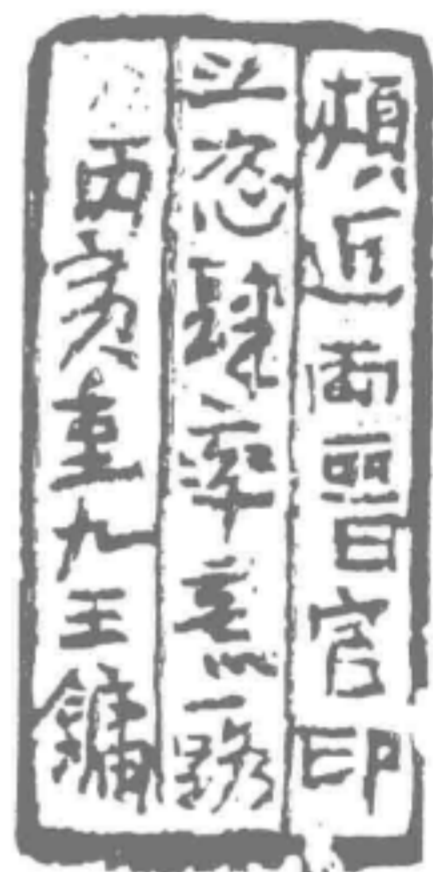 頗近兩晉官印
之恣肆率意一路
丙寅重九王鏞